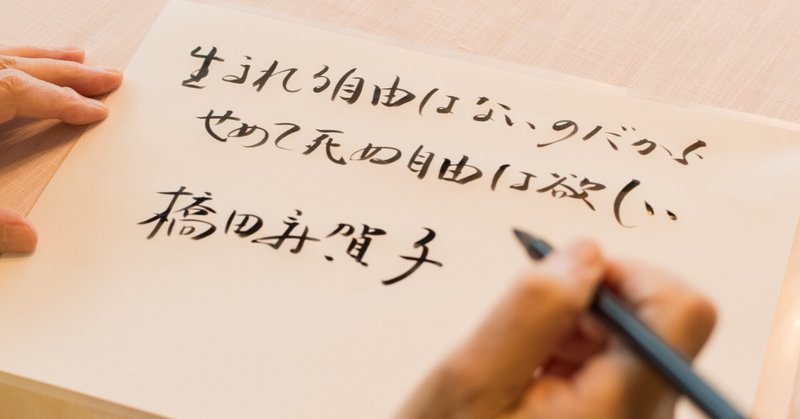 生まれる自由はないのだから
せめて死ぬ自由は欲しい
橋田寿賀子